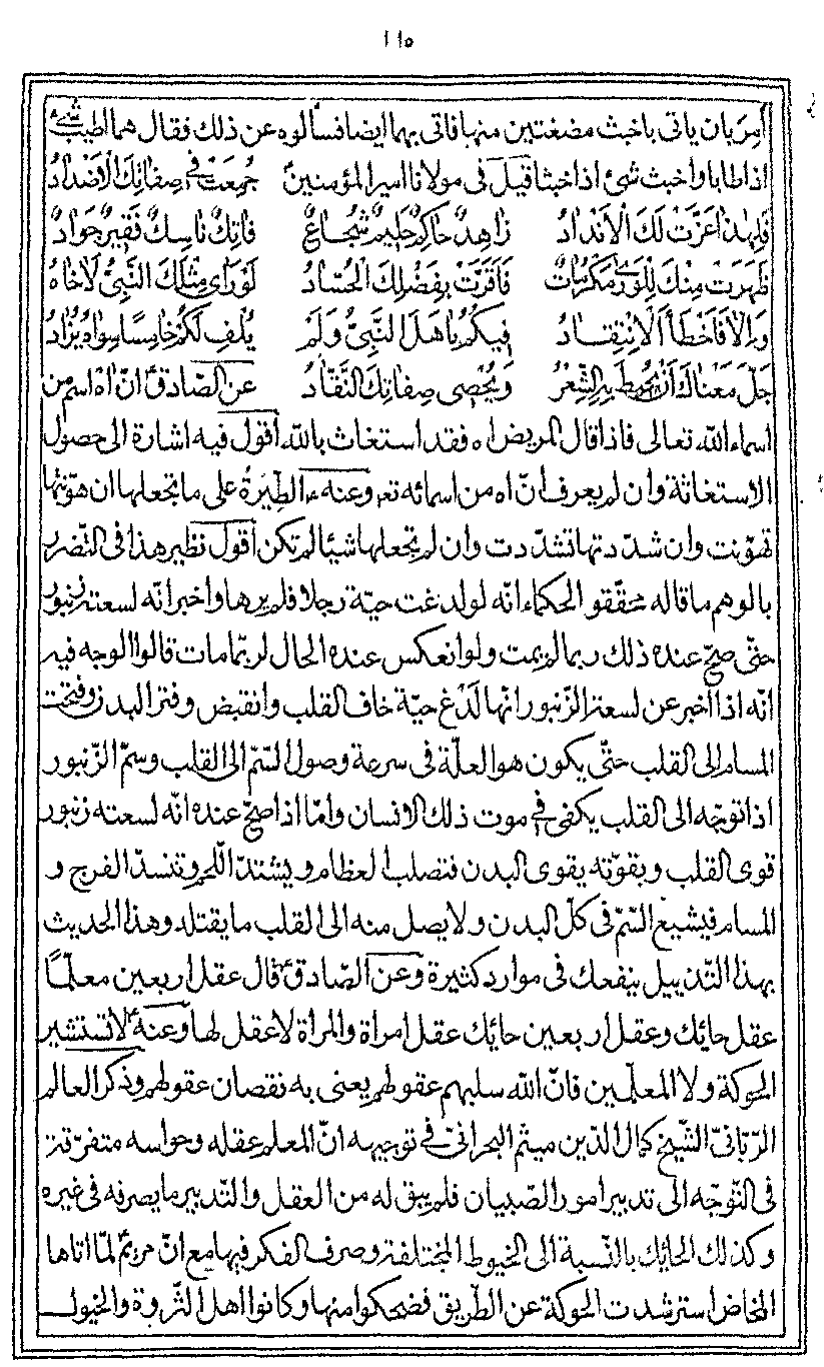 ١١٥
امر بان ياتى باخبث مضغتين منها فاتى بهما ايضا فسألوه عن ذلك فقال هما اطيب شئ
اذا طابا واخبث شئ اذا خبثا قيل فى مولانا امير المؤمنين جُمِعَتْ فى صِفاتِكَ الْاَضْدادُ
فَلِهذا عَزَّتْ لَكَ الْاَنْدادُ زاهِدٌ حاكِمٌ حَليمٌ شُجاعٌ فاتِكٌ ناسِكٌ فَقيرٌ جَوادٌ
ظَهَرَتْ مِنْكَ لِلْوَرى مَكْرُماتٌ فَاَقَرَّتْ بِفَضْلِكَ الْحُسّادُ لَوْ رَاى مِثْلَكَ النَّبِىُّ لَاخاهُ
وَاِلّا فَاَخْطَأَ الْاِنْتِقادُ فيكُمْ باهَلَ النَّبِىُّ وَلَمْ يُلْفِ لَكُمْ خامِسًا سِواهُ يُزادُ
جَلَّ مَعْناكَ اَنْ يُحيطَ بِهِ الشِّعْرُ وَيُحْصى صِفاتِكَ النَّقّادُ عن الصّادق انّ اه اسم من
اسماء الله تعالى فاذا قال المريض اه فقد استغاث بالله اقول فيه اشارة الى حصول
الاستغاثة وان لم يعرف انّ اه من اسمائه تع وعنه ع الطِيَرةُ على ما تجعلها ان هوّنتها
تهوّنت وان شدّدتها تشدّدت وان لم تجعلها شيئا لم تكن اقول نظير هذا فى التضرر
بالوهم ما قاله محقّقو الحكماء انّه لو لدغت حيّة رجلا فلم يرها واخبر انّه لسعته زنبور
حتّى صحّ عنده ذلك ربما لم يمت ولو انعكس عنده الحال لربّما مات قالوا الوجه فيه
انّه اذا اخبر عن لسعة الزّنبور انّها لَدْغ حيّة خاف القلب وانقبض وفتر البدن وفتحت
المسام الى القلب حتّى يكون هو العلّة فى سرعة وصول السّم الى القلب وسمّ الزّنبور
اذا توجّه الى القلب يكفى فى موت ذلك الانسان وامّا اذا صحّ عنده انّه لسعته زنبور
قوى القلب وبقوّته يقوى البدن فتصلب العظام ويشتدّ اللّحم وتنسدّ الفرج و
المسام فيشيع السّم فى كلّ البدن ولا يصل منه الى القلب ما يقتله وهذا الحديث
بهذا التّذييل ينفعك فى موارد كثيرة وعن الصّادق ع قال عقل اربعين معلّمًا
عقل حائك وعقل اربعين حائك عقل امراة والمراة لا عقل لها وعنه ع لا تستشير
الحوكة ولا المعلّمين فانّ الله سلبهم عقولهم يعنى به نقصان عقولهم وذكر العالم
الرّبّانىّ الشّيخ كمال الدّين ميثم البحرانىّ فى توجيهه انّ المعلم عقله وحواسه متفرّقة
فى التّوجّه الى تدبير امور الصّبيان فلم يبق له من العقل والتّدبير ما يصرفه فى غيره
وكذلك الحائك بالنّسبة الى الخيوط المختلفة وصرف الفكر فيها مع انّ مريم لمّا اتاها
المخاض استرشدت الحوكة عن الطّريق فضحكوا منها وكانوا اهل الثّروة والخيول